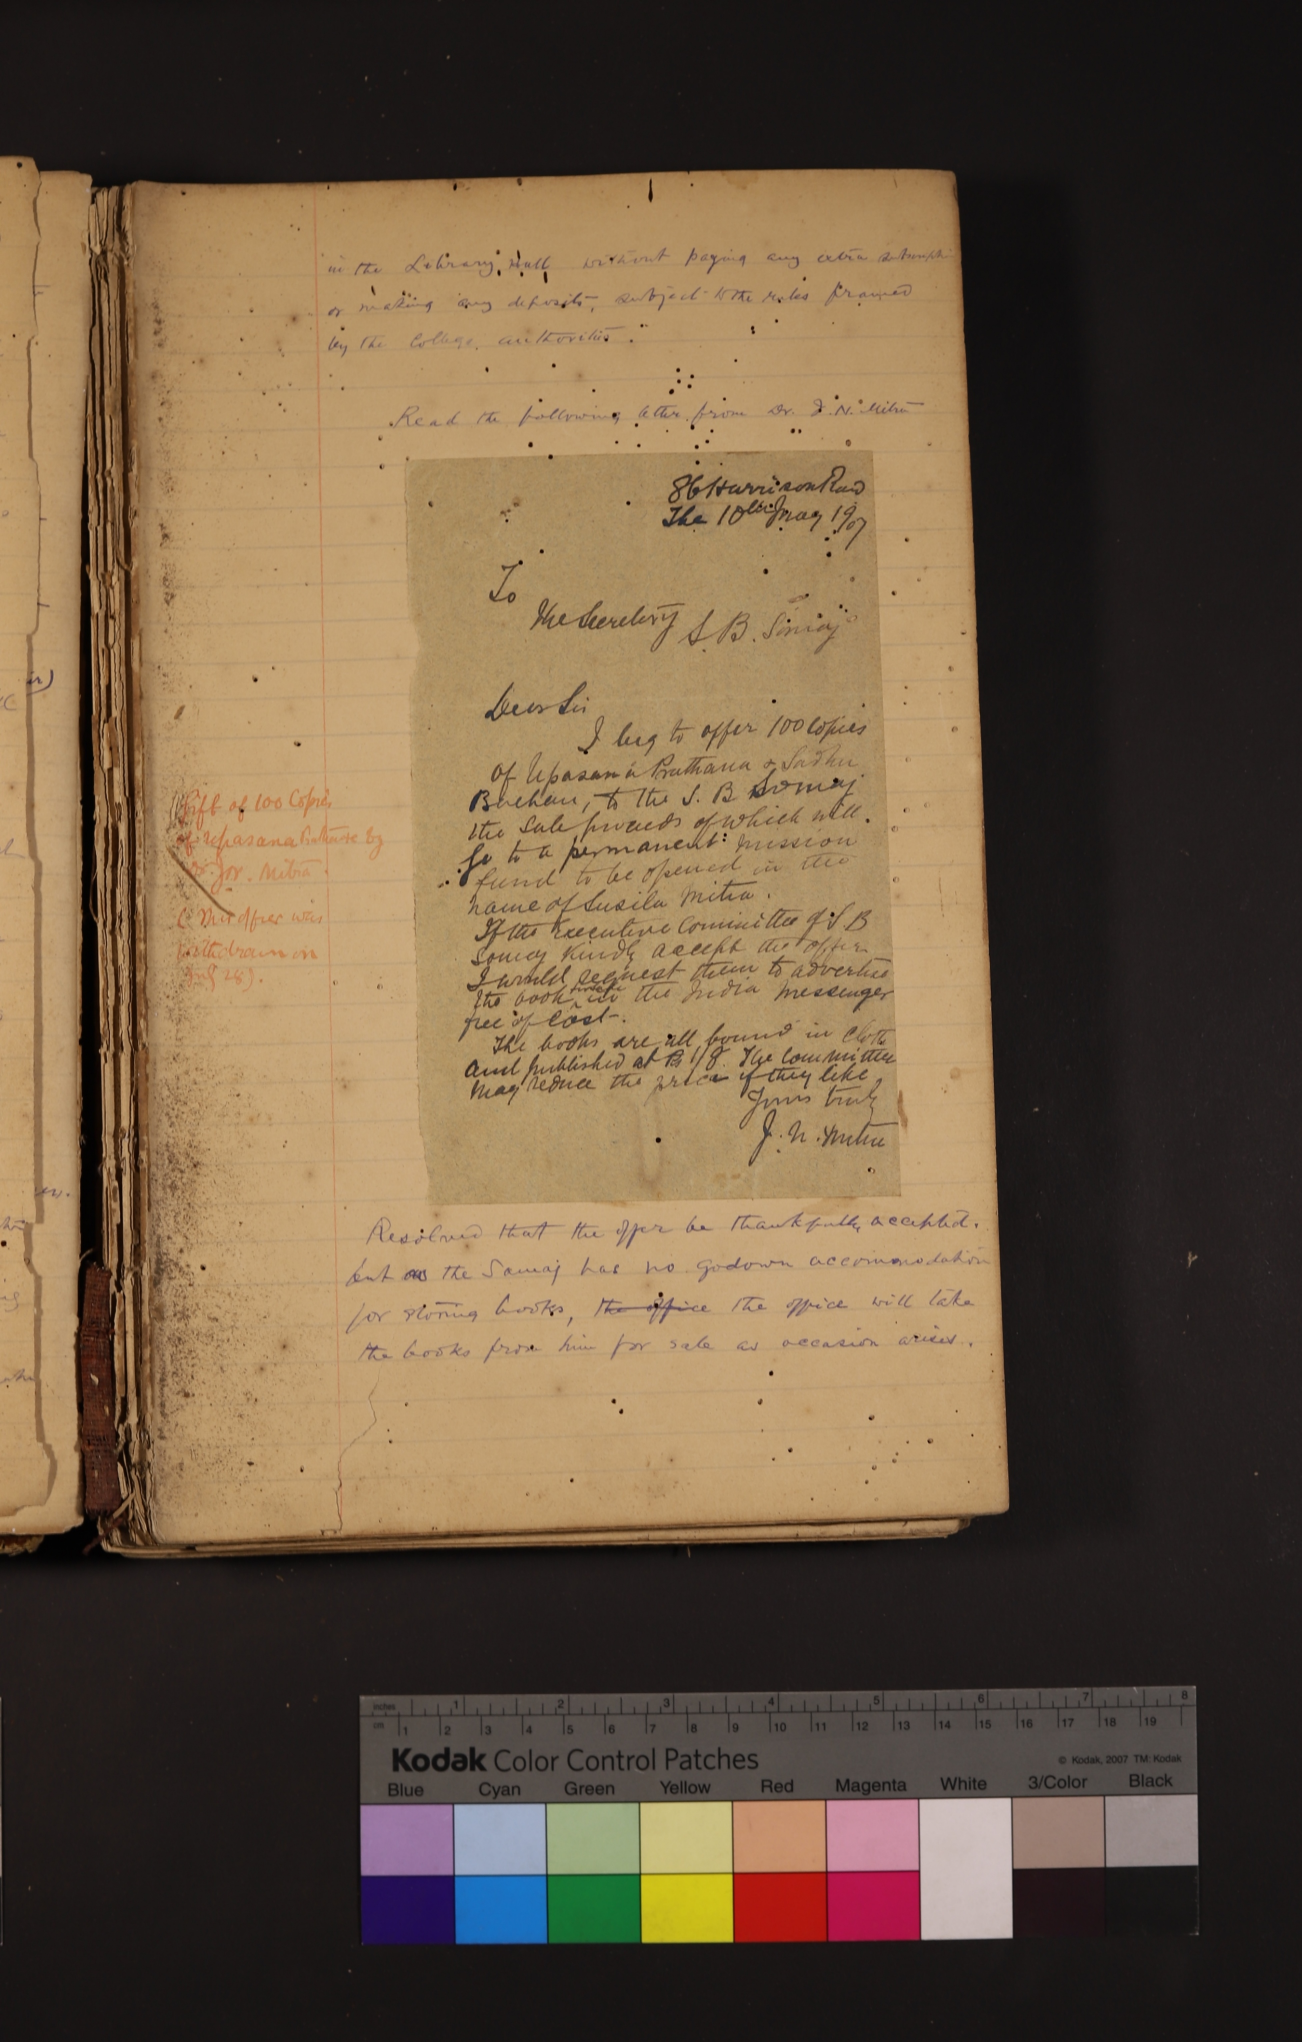 in the Library Hall without paying any extra subscription
or making any deposits, subject to the rules framed
by the College authorities.
Read the following letter from Dr. J. N. Mitra
86 Harrison Road
The 10th May 1907
To
The Secretary S. B. Somaj
Dear Sir
I beg to offer 100 copies
of Upasana Prathana & Sadhu
Bachan, to the S. B Somaj
the sale proceeds of which will
go to a permanent mission
fund to be opened in the
name of Susila Mitra.
If the Executive Committee of S B
Somaj kindly accept the offer
I would request them to advertise
the book in the India Messenger
free of cost.
The books are all bound in cloth
and published at Rs 1/8. The Committee
may reduce the price if they like
Yours truly
J. N. Mitra
Gift of 100 Copies
of Upasana Prathana by
Dr. Jn. Mitra.
(This offer was
withdrawn on
July 28).
Resolved that the offer be thankfully accepted.
but as the Samaj has no godown accommodation
for storing books, the office the office will take
the books from him for sale as occasion arises.
inches 1 2 3 4 5 6 7 8
cm 1 2 3 4 5 6 7 8 9 10 11 12 13 14 15 16 17 18 19
Kodak Color Control Patches
© Kodak, 2007 TM: Kodak
Blue Cyan Green Yellow Red Magenta White 3/Color Black